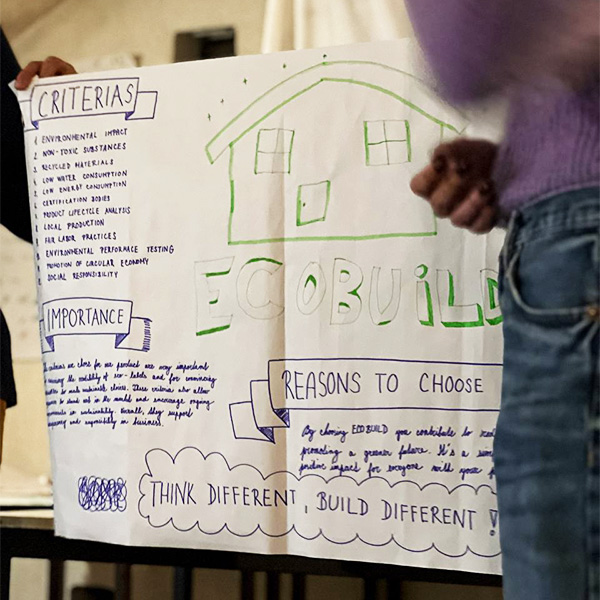 CRITERIAS
ENVIRONMENTAL IMPACT
NON-TOXIC SUBSTANCES
RECYCLED MATERIALS
LOW WATER CONSUMPTION
LOW ENERGY CONSUMPTION
CERTIFICATION BODIES
PRODUCT LIFECYCLE ANALYSIS
LOCAL PRODUCTION
FAIR LABOR PRACTICES
ENVIRONMENTAL PERFORMACE TESTING
PROMOTION OF CIRCULAR ECONOMY
SOCIAL RESPONSIBILITY
ECOBUILD
IMPORTANCE
criterias we chose for our product are very important
ensuring the credibility of eco-labels and for
to make sustainable choices. These criteria also allow
to stand out in the world and encourage ongoing
in sustainability. Overall, they support
and responsibility in business.
REASONS TO CHOOSE
By choosing ECOBUILD you contribute to
promoting a greener future. It's a
positive impact for everyone with your
THINK DIFFERENT, BUILD DIFFERENT!